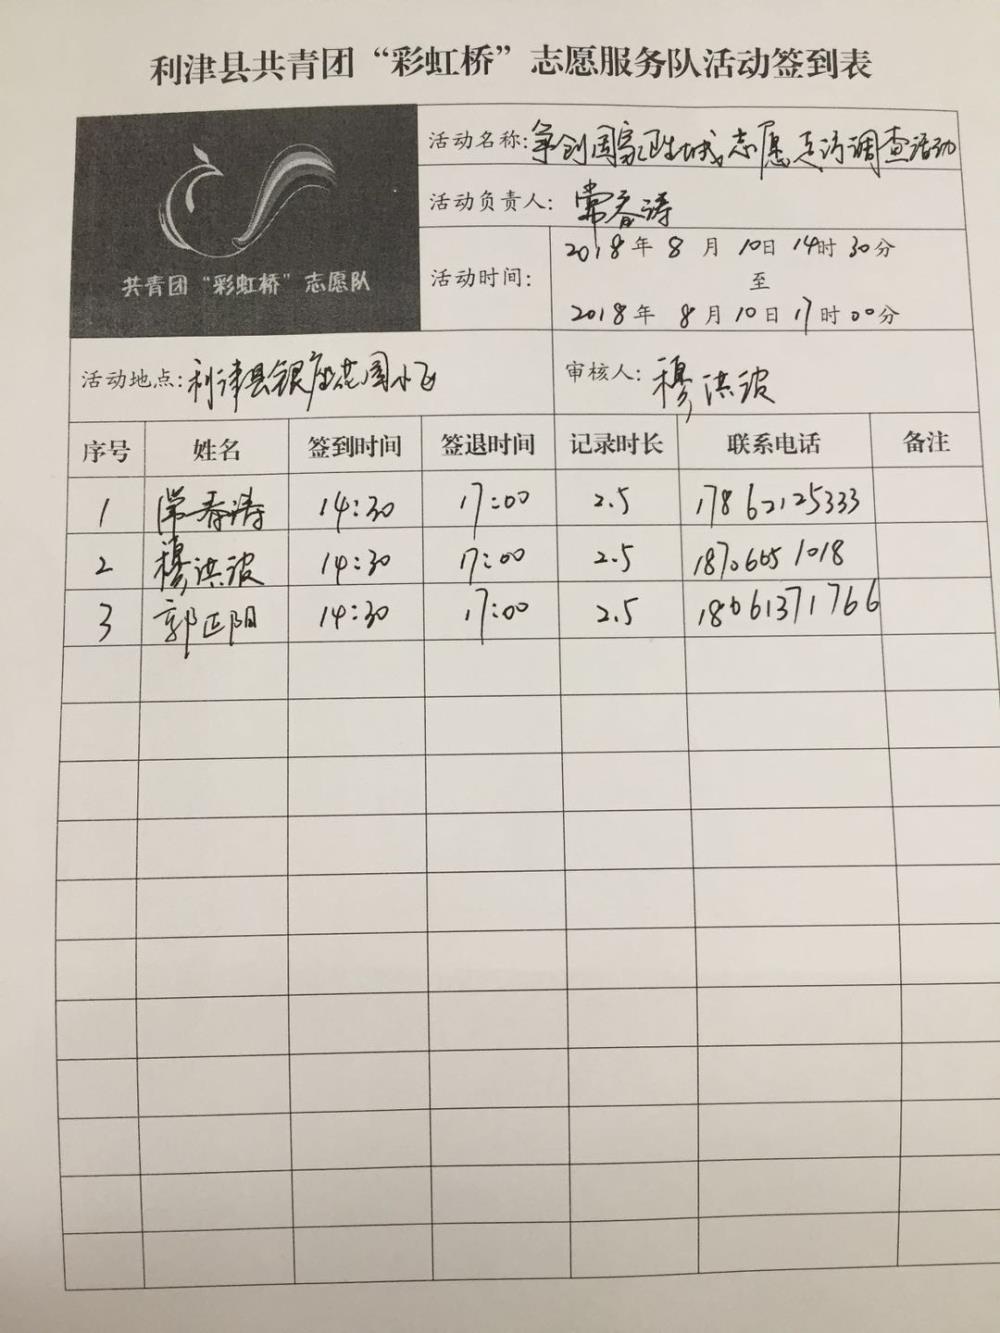 利津县共青团“彩虹桥”志愿服务队活动签到表
共青团“彩虹桥”志愿队
活动名称:争创国家卫生城志愿走访调查活动
活动负责人:常春涛
活动时间:
2018年8月10日14时30分
至
2018年8月10日17时00分
活动地点:利津县银座花园小区
审核人:穆洪波
序号 姓名 签到时间 签退时间 记录时长 联系电话 备注
1 常春涛 14:30 17:00 2.5 17862125333
2 穆洪波 14:30 17:00 2.5 18706051018
3 郭正阳 14:30 17:00 2.5 18061371766